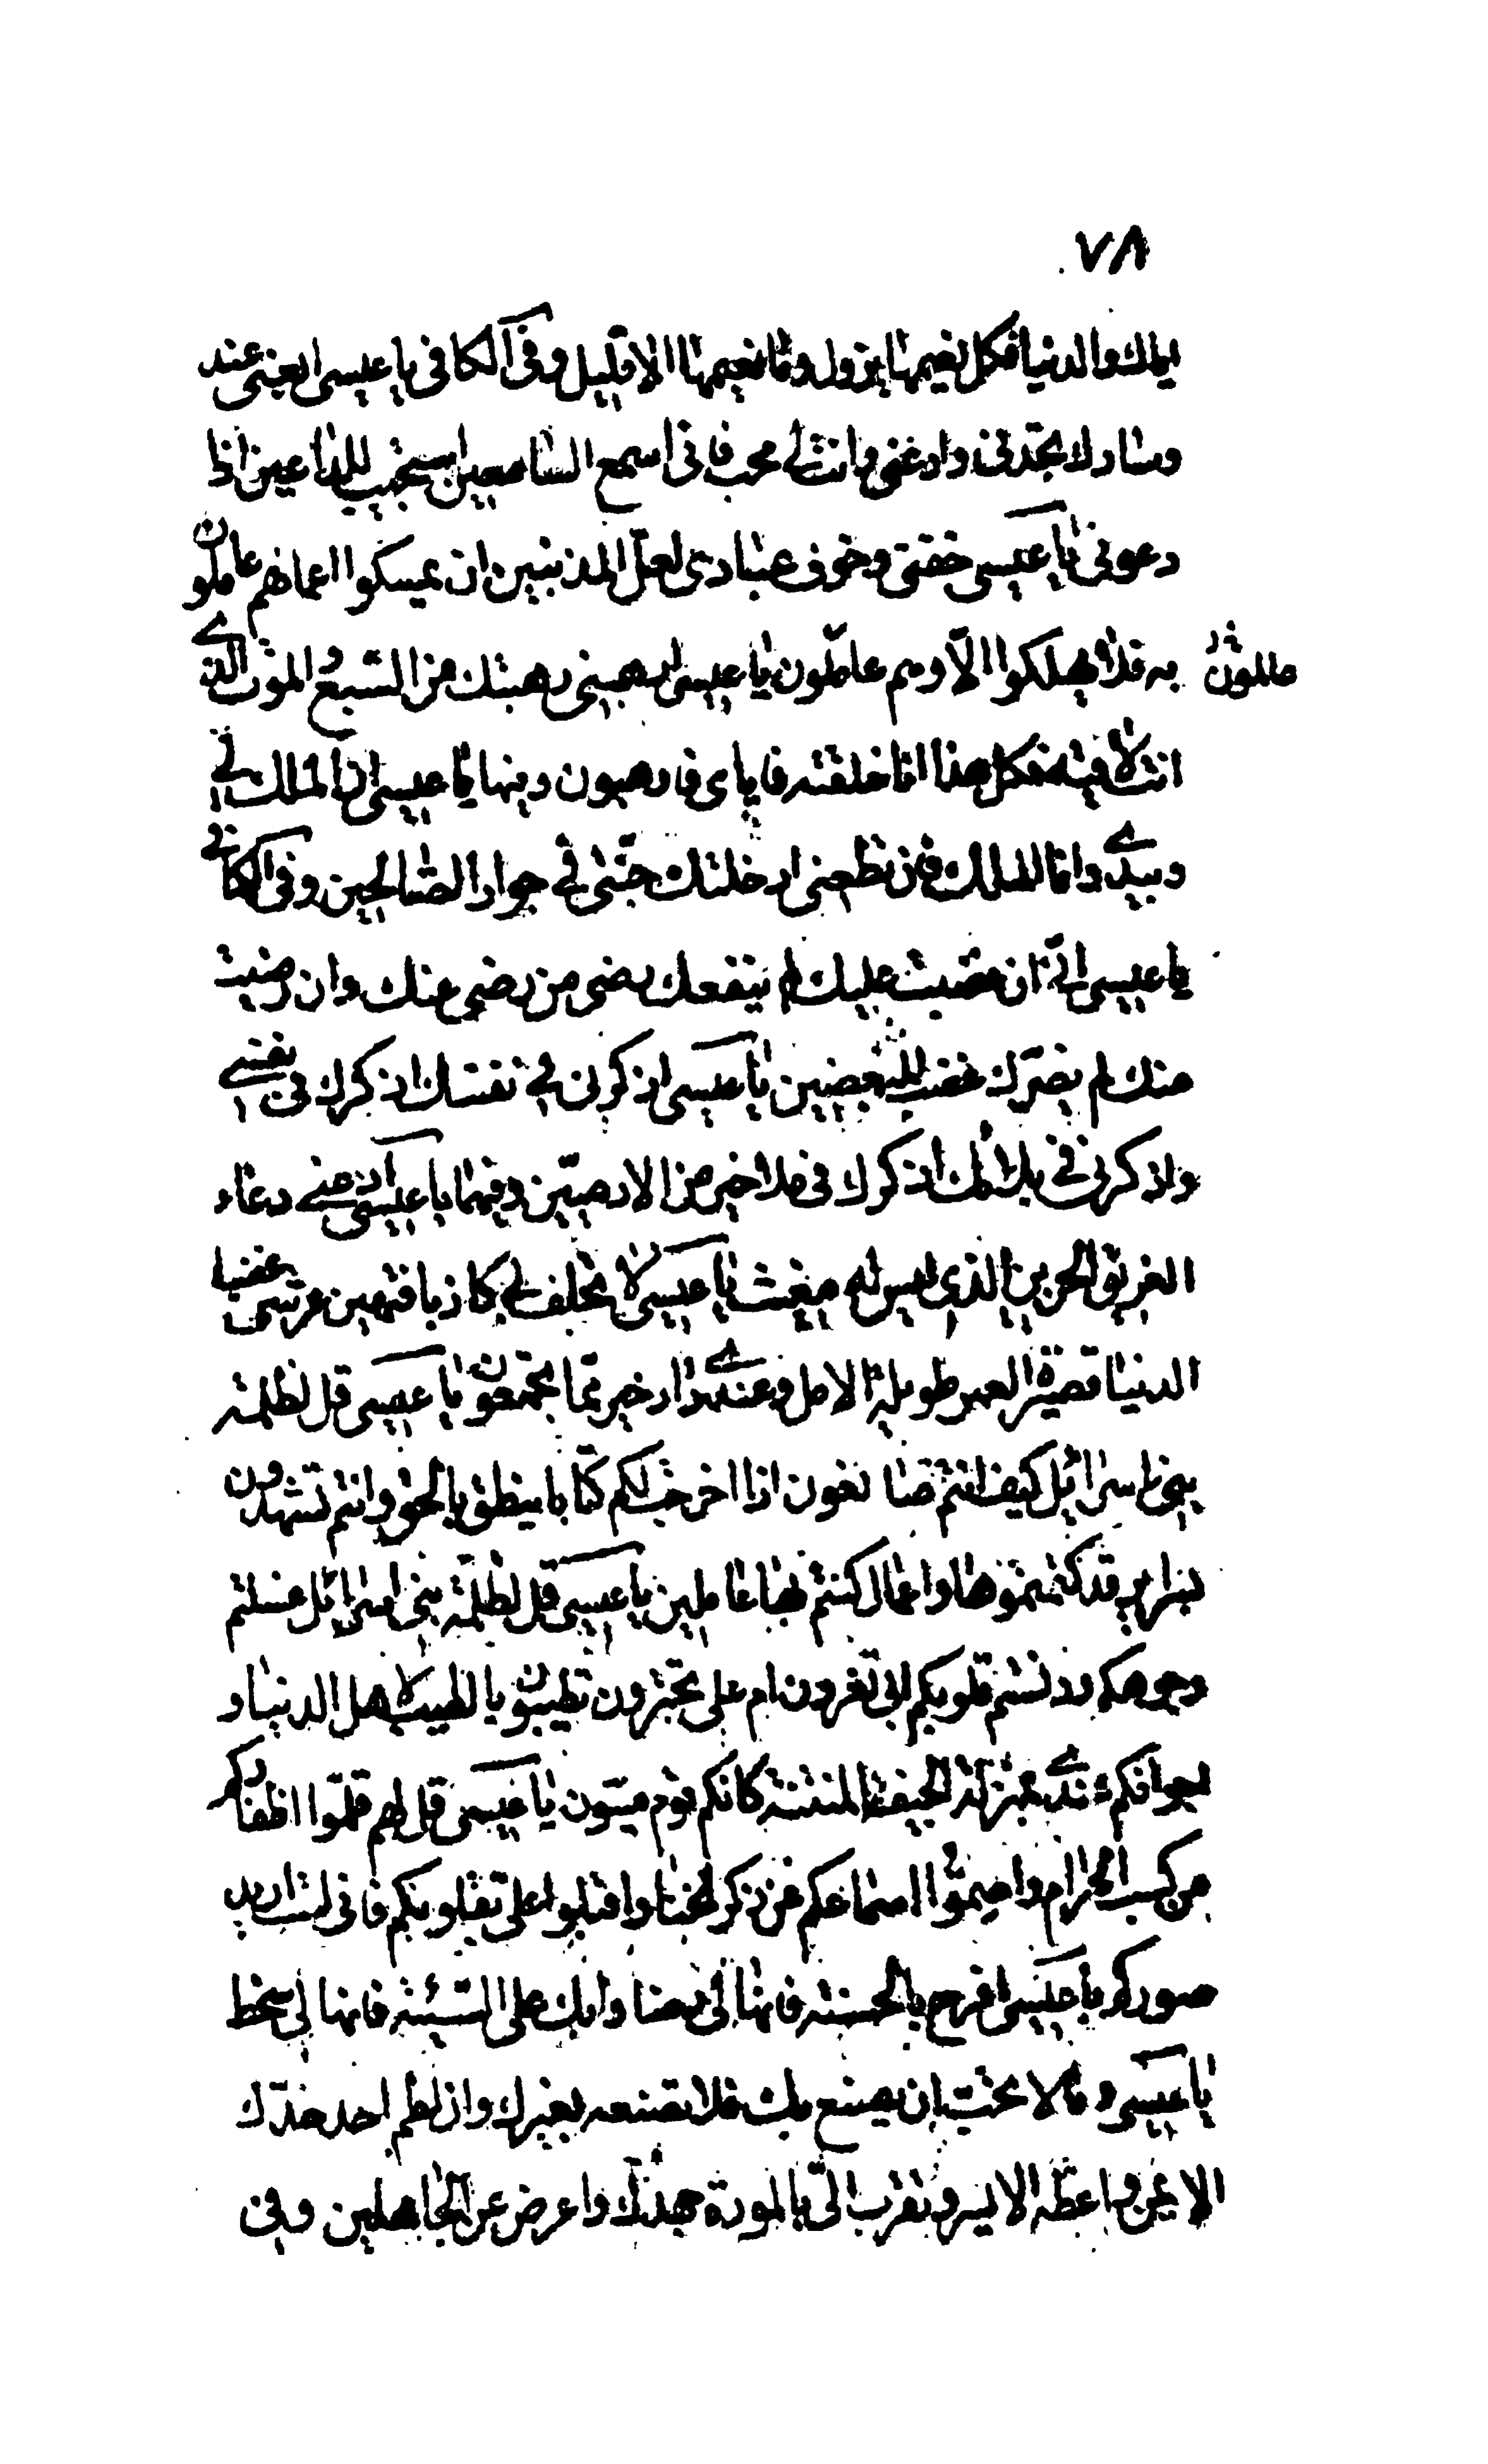 ٧٨
اياك والدنيا فكل نعيمها يزول وما نعيمها الا قليل وفي الكافي يا عيسى ابغني عند
وسادك تجدني وادعني وانت لي محب فاني اسمع السامعين استجيب للداعين اذا
دعوني يا عيسى خفني وخوف عبادي لعل المذنبين ان يمسكوا عما هم عاملون
به فلا يهلكوا الا وهم عاملون يا عيسى ارهبني رهبتك من السبع والموت الذي
انت لاقيه فكل هذا انا خلقته فاياي فارهبون وفيها يا عيسى ان الملك لي
وبيدي وانا الملك فان تطعني ادخلتك جنتي في جوار الصالحين وفي الكافي
يا عيسى اني ان غضبت عليك لم ينفعك رضى من رضي عنك وان رضيت
عنك لم يضرك غضب المغضبين يا عيسى اذكرني في نفسك اذكرك في نفسي
واذكرني في ملائك اذكرك في ملاء خير من الادميين وفيهما يا عيسى ادعني دعاء
الغريق الحزين الذي ليس له مغيث يا عيسى لا تحلف لي كاذبا فيهتز عرشي غضبا
الدنيا قصيرة العمر طويلة الامل وعندي دار خير مما تجمعون يا عيسى قل لظلمة
بني اسرائيل كيف انتم صانعون اذا اخرجت لكم كتابا ينطق بالحق وانتم تشهدون
بسراير قد كتمتموها واعمال كنتم بها عاملين يا عيسى قل لظلمة بني اسرائيل غسلتم
وجوهكم ودنستم قلوبكم ابي تغترون ام علي تجترون تطيبون بالطيب لاهل الدنيا و
اجوافكم عندي بمنزلة الجيف المنتنة كانكم قوم ميتون يا عيسى قل لهم قلموا اظفاركم
من كسب الحرام واصموا اسماعكم عن ذكر الخنا واقبلوا علي بقلوبكم فاني لست اريد
صوركم يا عيسى افرح بالحسنة فانها لي رضا وابك على السيئة فانها لي سخط
يا عيسى وما لا تحب ان يصنع بك فلا تصنعه بغيرك وان لطم احد خدك
الايمن فاعطه الايسر وتقرب الي بالمودة جهدك واعرض عن الجاهلين وفي